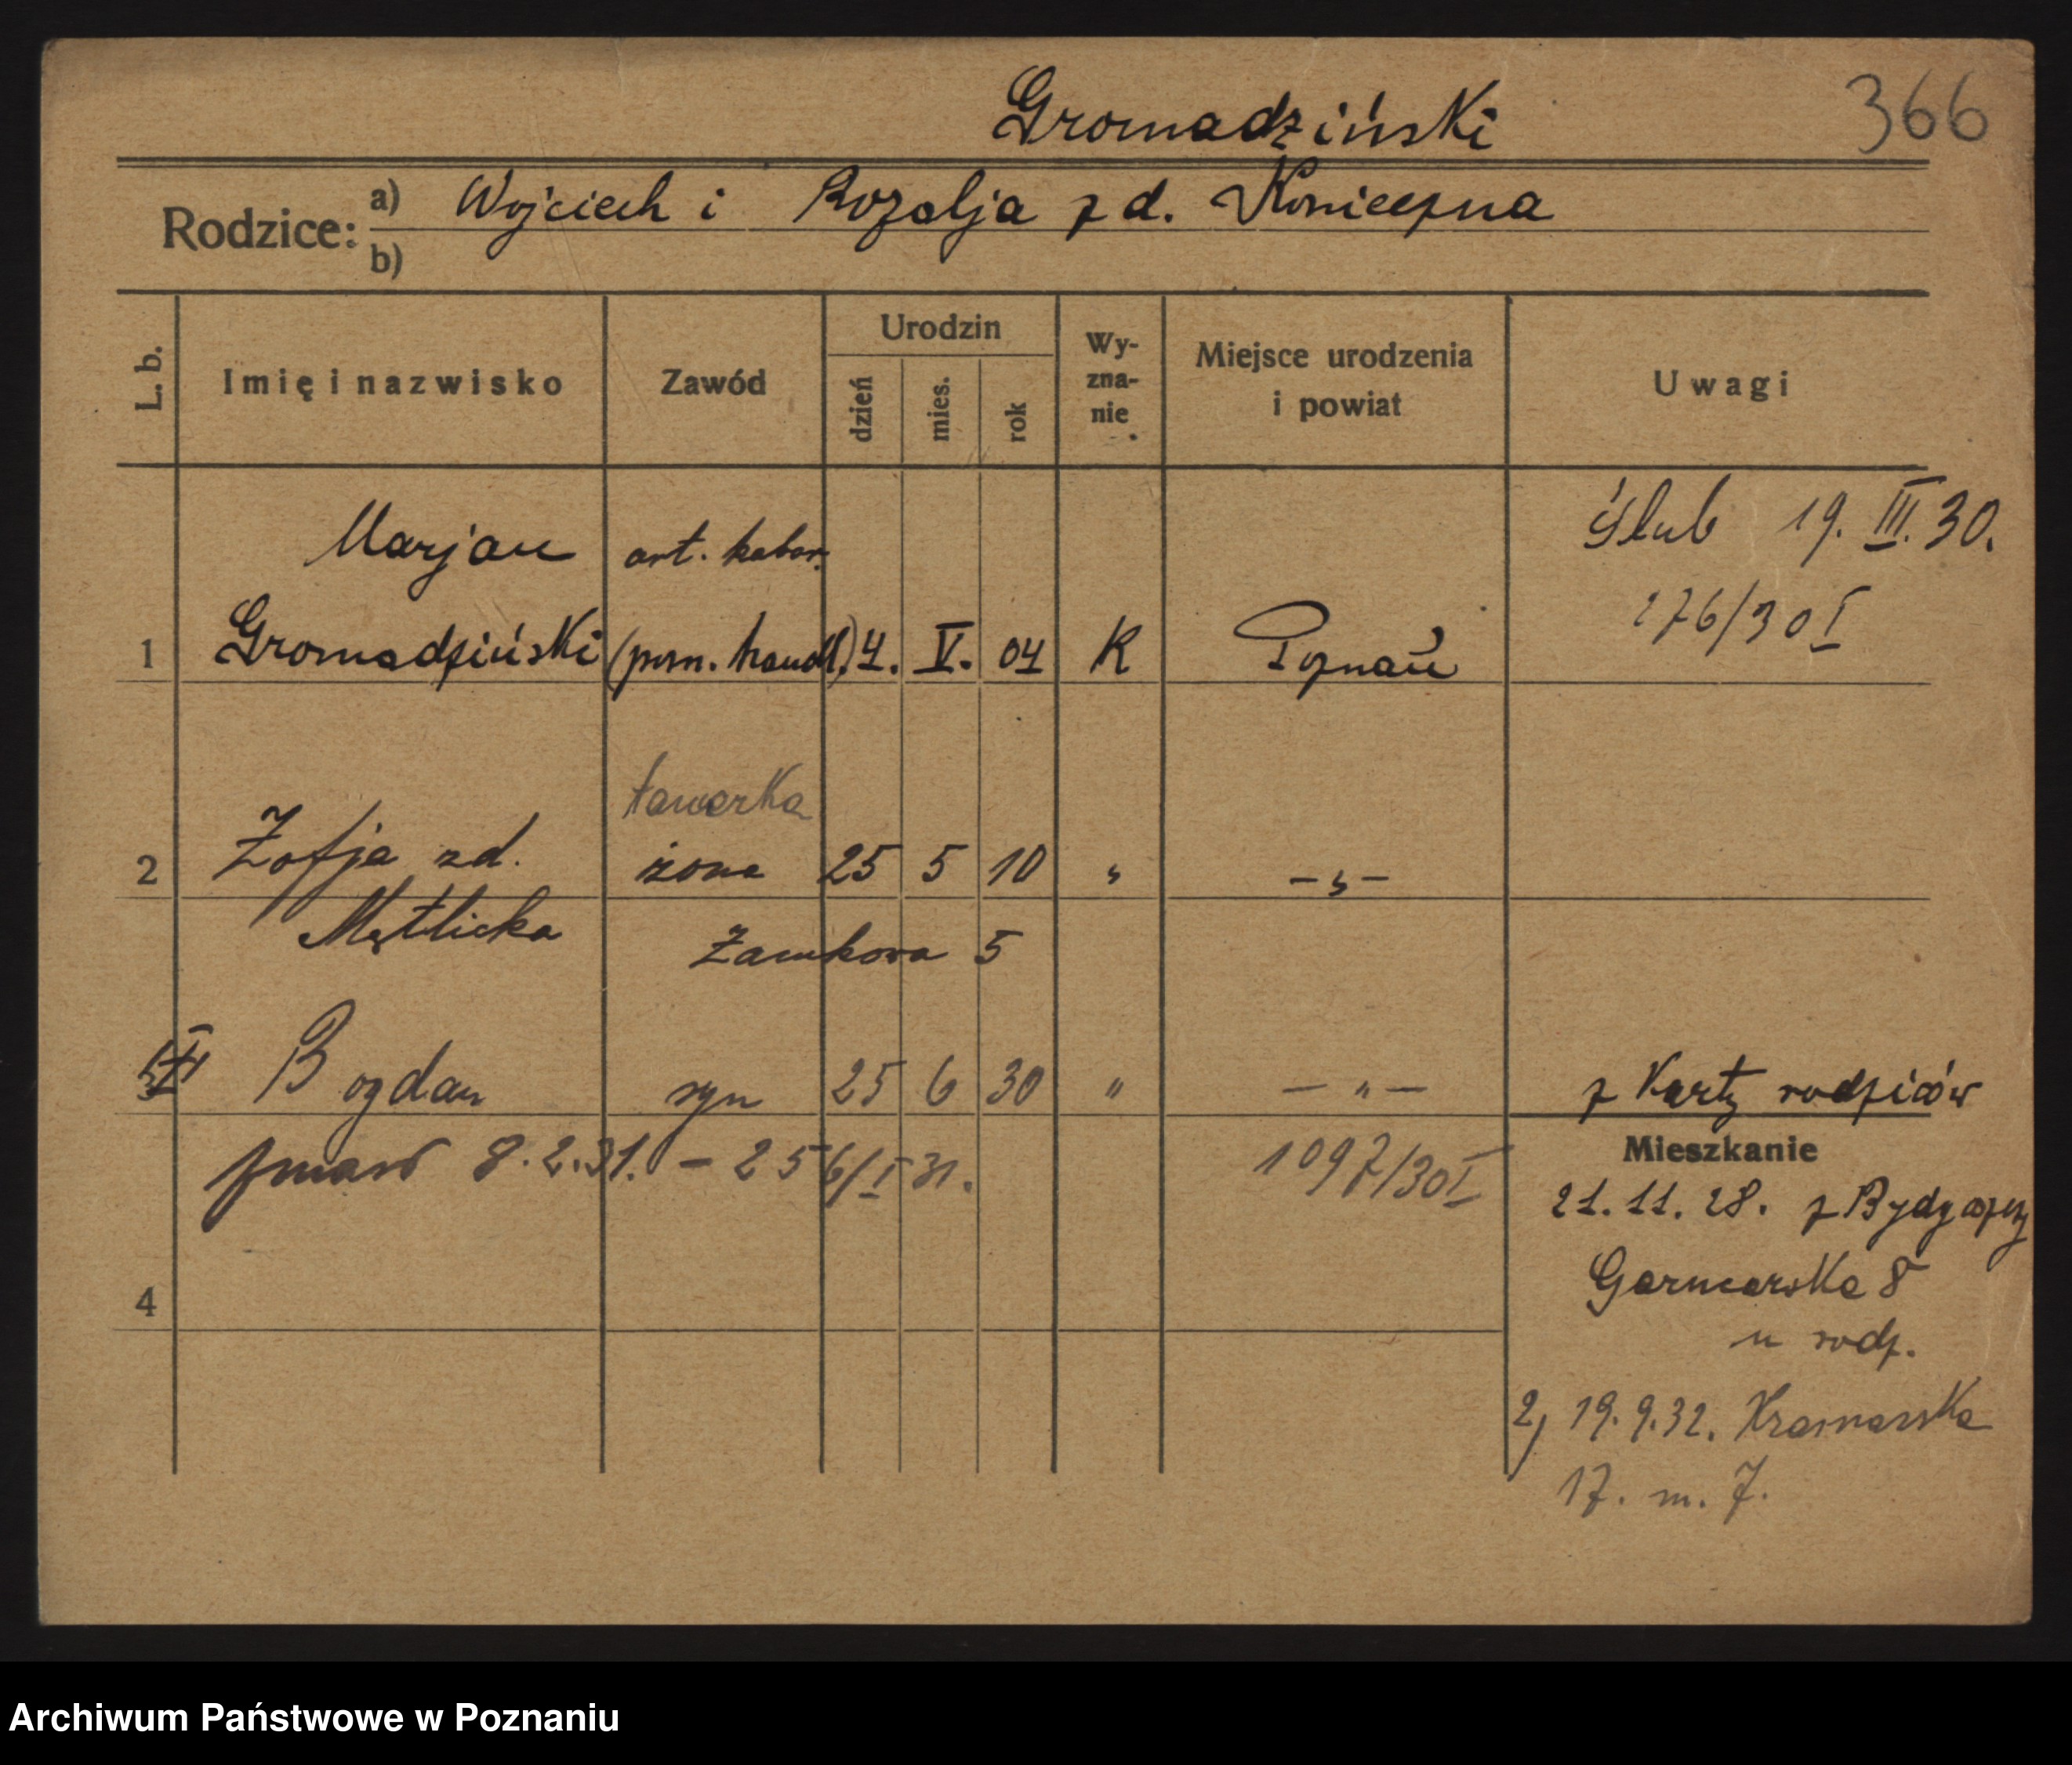 Gromadziński
366
Rodzice: a) Wojciech i Rozalja z d. Konieczna
b)
L. b.
Imię i nazwisko
Zawód
Urodzin
dzień
mies.
rok
Wy-
zna-
nie
Miejsce urodzenia
i powiat
Uwagi
Marjan art. kabar. Ślub 19. III. 30.
276/30 I
1 Gromadziński (pom. handl.) 4. V. 04 K Poznań
2 Zofja zd. żona 25 5 10 " - " -
Mętlicka Zamkowa 5
Bogdan syn 25 6 30 " - " - z Karty rodziców
zmarł 8.2.31. - 256/I 31. 1097/30 I
Mieszkanie
21.11.28. z Bydgoszczy
Garncarska 8
u rodz.
4
2) 19.9.32. Kramarska
17. m. 7.
Archiwum Państwowe w Poznaniu